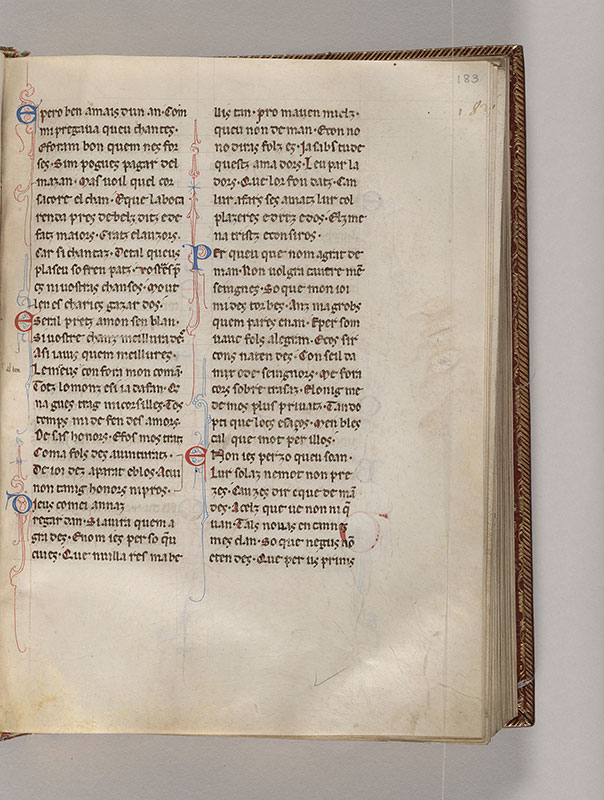 183
E pero ben amais dun an. Com
mi pregaua queu chantes.
E foram bon quem nes for
ses. Sim pogues pagar del
mazan. Mas uoil quel cor
sacore el chan. E que la boca
renda pres de belz ditz e de
faitz maiors. Gratz e lauzors.
Car si chantaz. De tal que us
plaseu sofren patz.
es ni uostras chansos. mout
len es charies gazardos.
E se tal pretz amon sen blan.
Si uostre chanz meillura de
A si iauis quem meillures.
Len seus con fora mon coman.
Totz lo monz es ia dafan. E
na gues trag mi cor silles. Tos
temps mi de fen des amors.
De sas honors. E fos mos trat
Com a fols des auenturatz.
De ioi dez aparat e blos. A cui
non tanig honors ni pros.
Dieus com ei annaz
regardan. Si aura quem a
gra des. E nom ies per so qu
cuies. Que nuilla res ma be
llis tan. pro mauen mielz.
queu non deman. E con no
no diras folz es. Ja sabs tu de
questz ama dors. Leu par la
dors. Que lor fon datz. Can
lur afars ses auatz lur col
plazeres e dritz e dos. Elz me
na tristz e consiros.
Per queu que nom agrat de
man. Non uol gra cuitre men
seingnes. So que mon ioi
mi des torbes. Anz ma grobs
quem pares enan. E per som
uaue fols alegran. E cos sir
cons naten des. Con seil da
mix o de seingnors. Me fora
cors sobre trasaz. E lonig me
de mos plus priuatz. Tan do
pti que locs e saços. Men bles
cal que mot per illos.
E Non ies per zo queu soan.
Lur solaz ne mot non pre
zes. Cauzes dir e que de ma
des. Acelz que ue non ni q
uan. Tals nouas en tannes
mes clan. So que negus no
eten des. Que per us prims